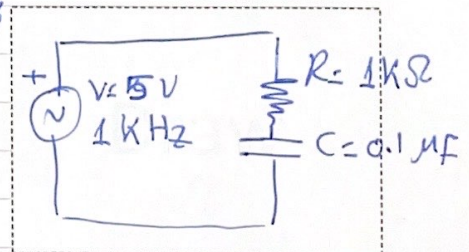 +
V= 5 V
1 KHz
R= 1KΩ
C= 0.1 μF